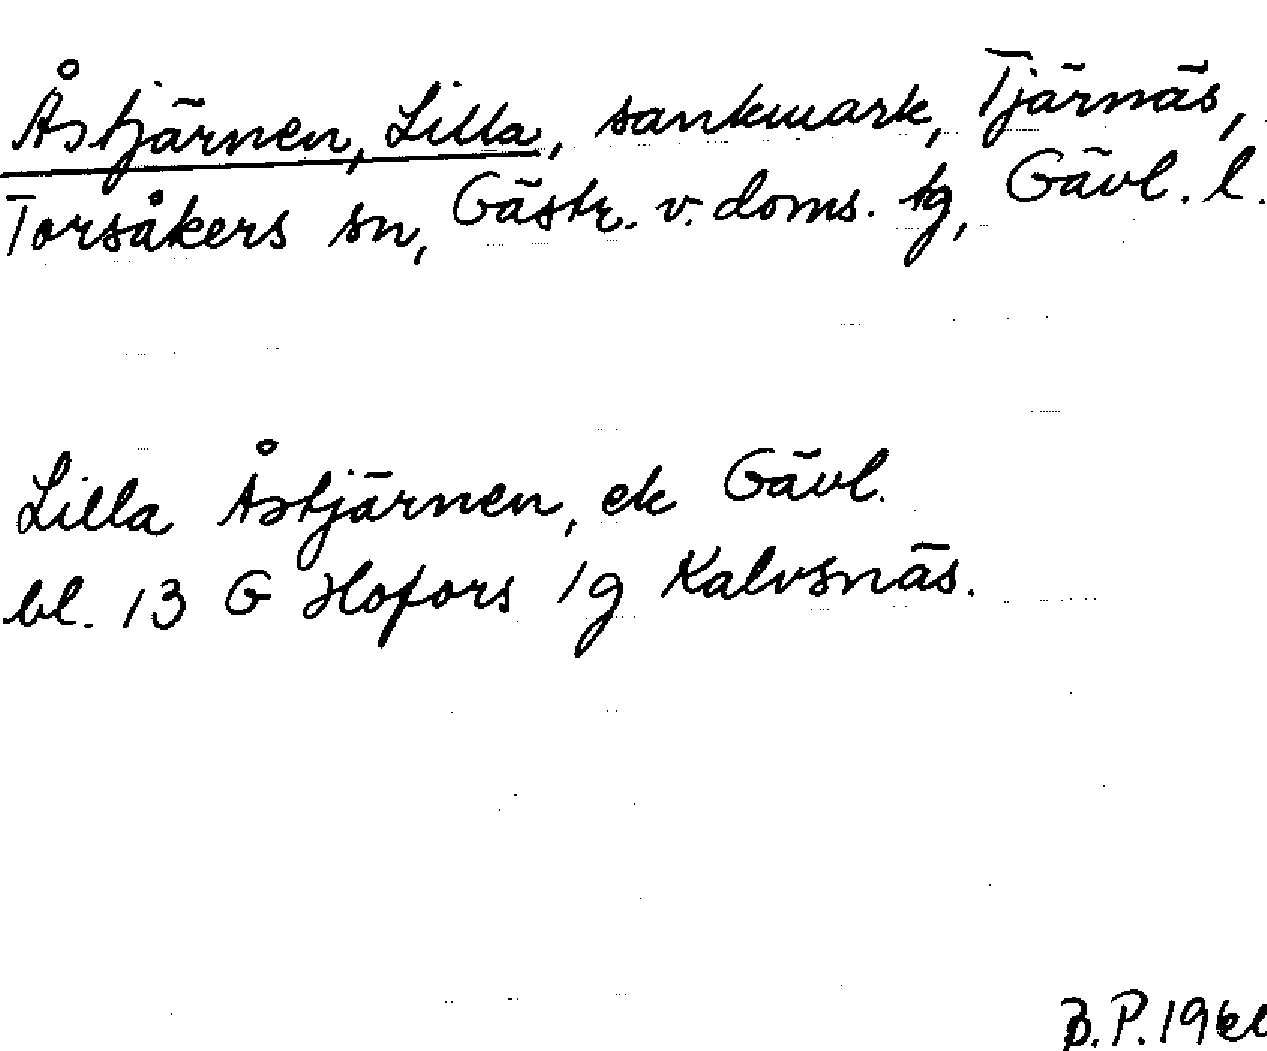 Åstjärnen, Lilla, sankmark, Tjärnäs,
Torsåkers sn, Gästr. v. doms. tg, Gävl. l.
Lilla Åstjärnen, ek Gävl.
bl. 13 G Hofors 1g Kalvsnäs.
B.P.